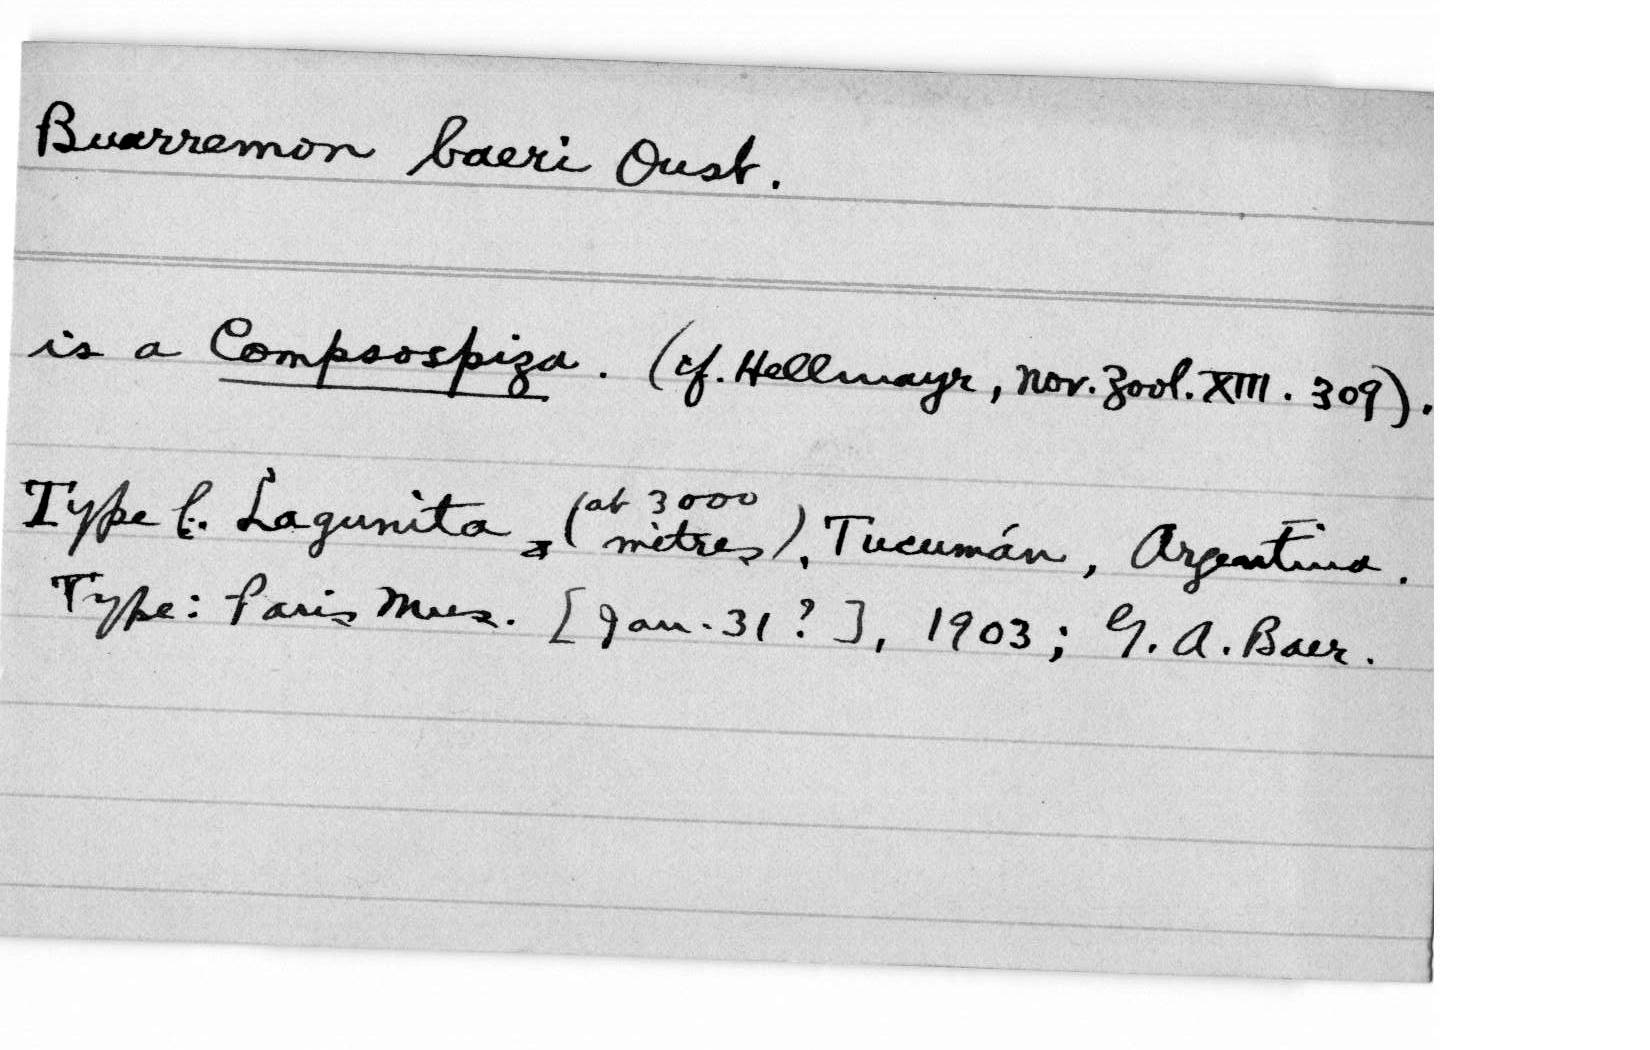 Buarremon baeri Oust.
is a Compsospiza. (cf. Hellmayr, Nov. Zool. XIII. 309).
Type l. Lagunita, (at 3000 mètres), Tucumán, Argentina.
Type: Paris Mus. [Jan. 31?], 1903; G. A. Baer.